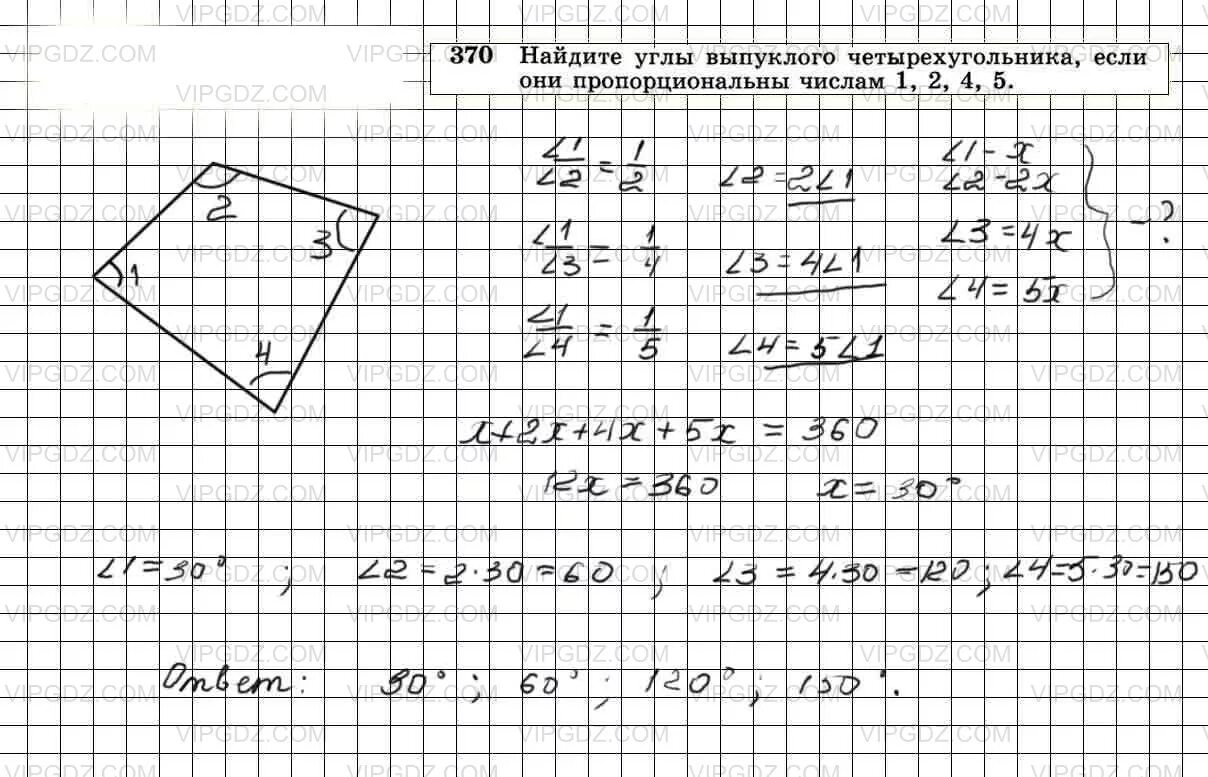 370 Найдите углы выпуклого четырехугольника, если
они пропорциональны числам 1, 2, 4, 5.
∠1/∠2 = 1/2 ∠2 = 2∠1 ∠1 - x
∠2 - 2x
∠1/∠3 = 1/4 ∠3 = 4∠1 ∠3 = 4x } - ?
∠1/∠4 = 1/5 ∠4 = 5∠1 ∠4 = 5x
2
3
1
4
x + 2x + 4x + 5x = 360
12x = 360 x = 30°
∠1 = 30° ; ∠2 = 2·30 = 60 ; ∠3 = 4·30 = 120 ; ∠4 = 5·30 = 150
Ответ: 30° ; 60° ; 120° ; 150°.
VIPGDZ.COM